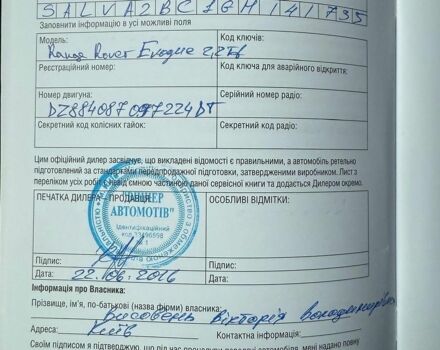 SALVA2BC7GH141735
Заповнити інформацію в усі можливі поля
Модель: Код ключів:
Range Rover Evoque 2,2Td
Реєстраційний номер: Код ключа для аварійного відкриття:
Номер двигуна: Серійний номер радіо:
DZ884087 097224DT
Секретний код колісних гайок: Секретний код радіо:
Цим офіційний дилер засвідчує, що викладені відомості є правильними, а автомобіль ретельно
підготовлений за стандартами передпродажної підготовки, затвердженими виробником. Лист з
переліком усіх робіт є невід'ємною частиною даної сервісної книги та додається Дилером окремо.
ПЕЧАТКА ДИЛЕРА - ПРОДАВЦЯ: ОСОБЛИВІ ВІДМІТКИ:
АВТОМОТІВ"
Ідентифікаційний
код 33496558
Підпис: Підпис:
Дата: 22.06.2016 Дата:
Інформація про Власника:
Прізвище, ім'я, по-батькові (назва фірми) власника:
Вікторія
Адреса: Київ Контактна інформація:
Своїм підписом я підтверджую, що під час